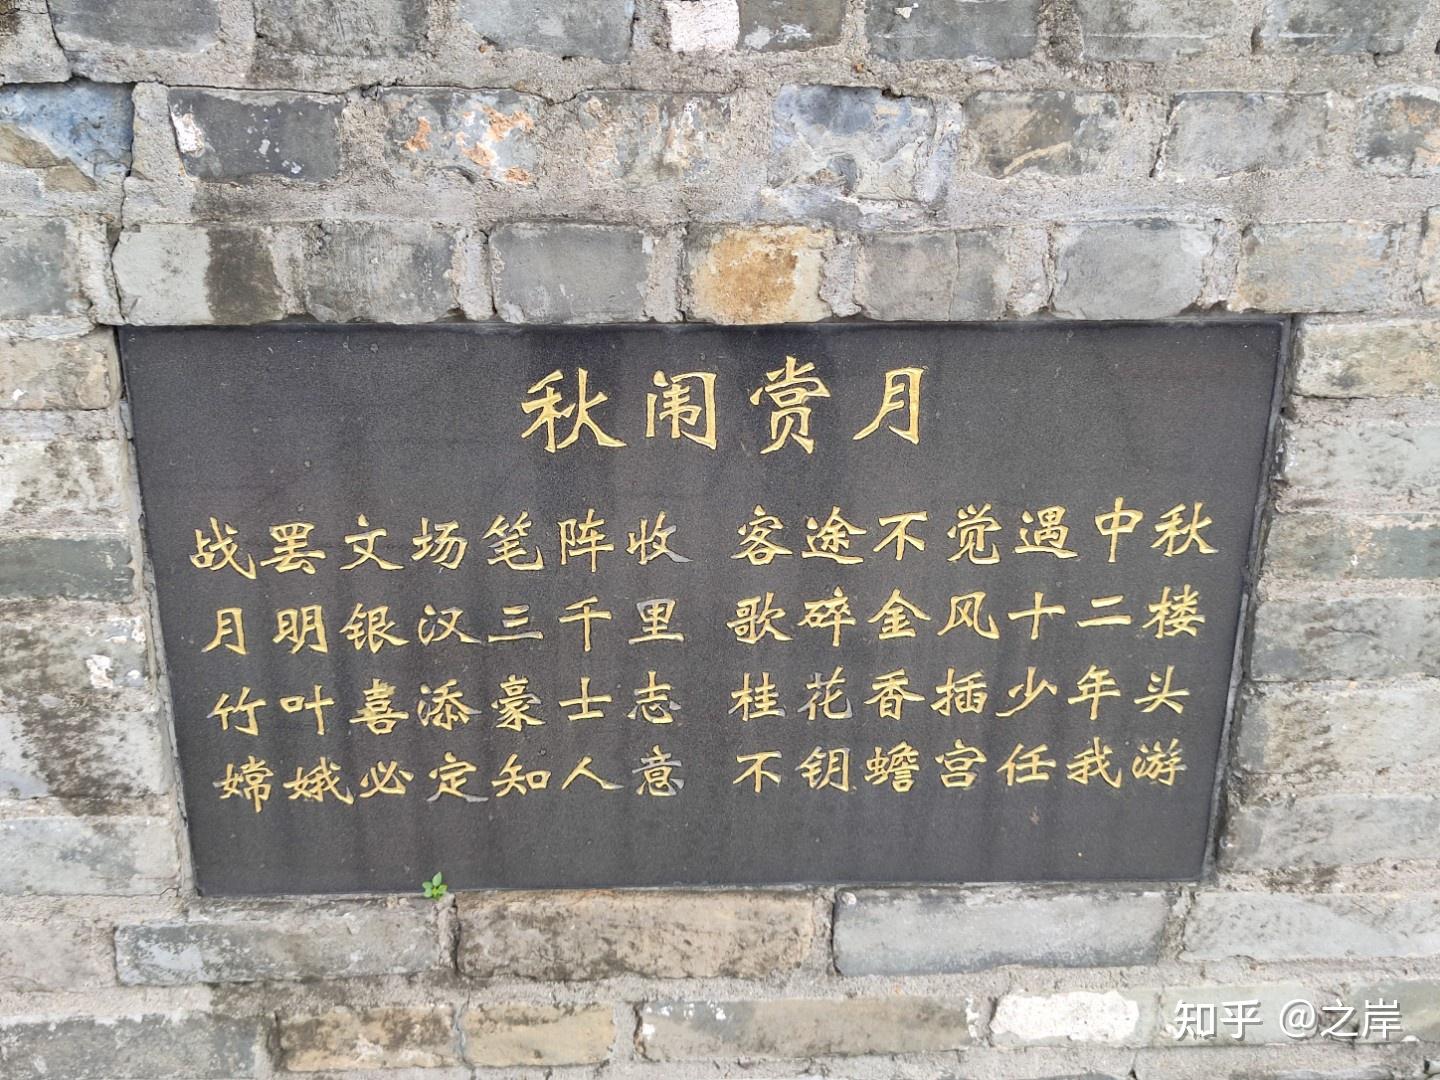 秋闱赏月
战罢文场笔阵收 客途不觉遇中秋
月明银汉三千里 歌碎金风十二楼
竹叶喜添豪士志 桂花香插少年头
嫦娥必定知人意 不钥蟾宫任我游
知乎 @之岸